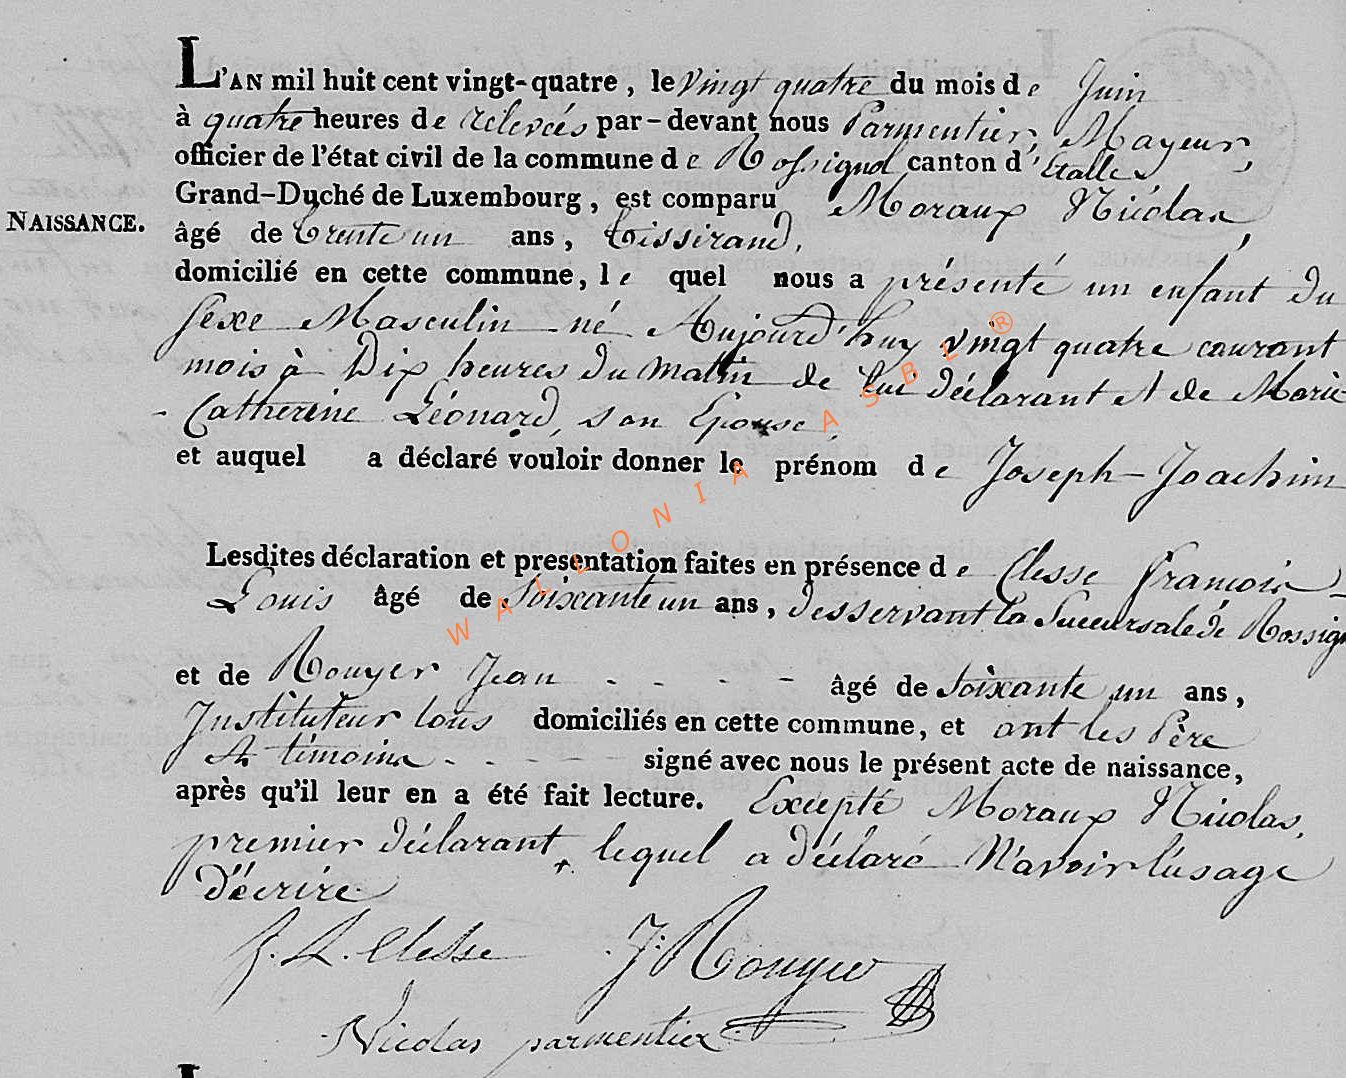 L'AN mil huit cent vingt-quatre, le vingt quatre du mois de Juin
à quatre heures de relevées par-devant nous Parmentier, Mayeur,
officier de l'état civil de la commune de Rossignol canton d'Etalle,
Grand-Duché de Luxembourg, est comparu Moraux Nicolas,
NAISSANCE.
âgé de trente un ans, tisserand,
domicilié en cette commune, le quel nous a présenté un enfant du
sexe Masculin né Aujourd'huy vingt quatre courant
mois à Dix heures du matin de lui déclarant et de Marie
-Catherine Léonard, son Epouse,
et auquel a déclaré vouloir donner le prénom de Joseph-Joachim
Lesdites déclaration et presentation faites en présence de Clesse François-
Louis âgé de soixante un ans, desservant la Succursale de Rossign
et de Rouyer Jean - - - - âgé de soixante un ans,
Instituteur tous domiciliés en cette commune, et ont les Père
et témoins - - - - - signé avec nous le présent acte de naissance,
après qu'il leur en a été fait lecture. Excepté Moraux Nicolas,
premier déclarant, lequel a déclaré N'avoir l'usage
d'écrire
f. L. Clesse J: Rouyer
Nicolas parmentier
WALLONIA ASBL ®